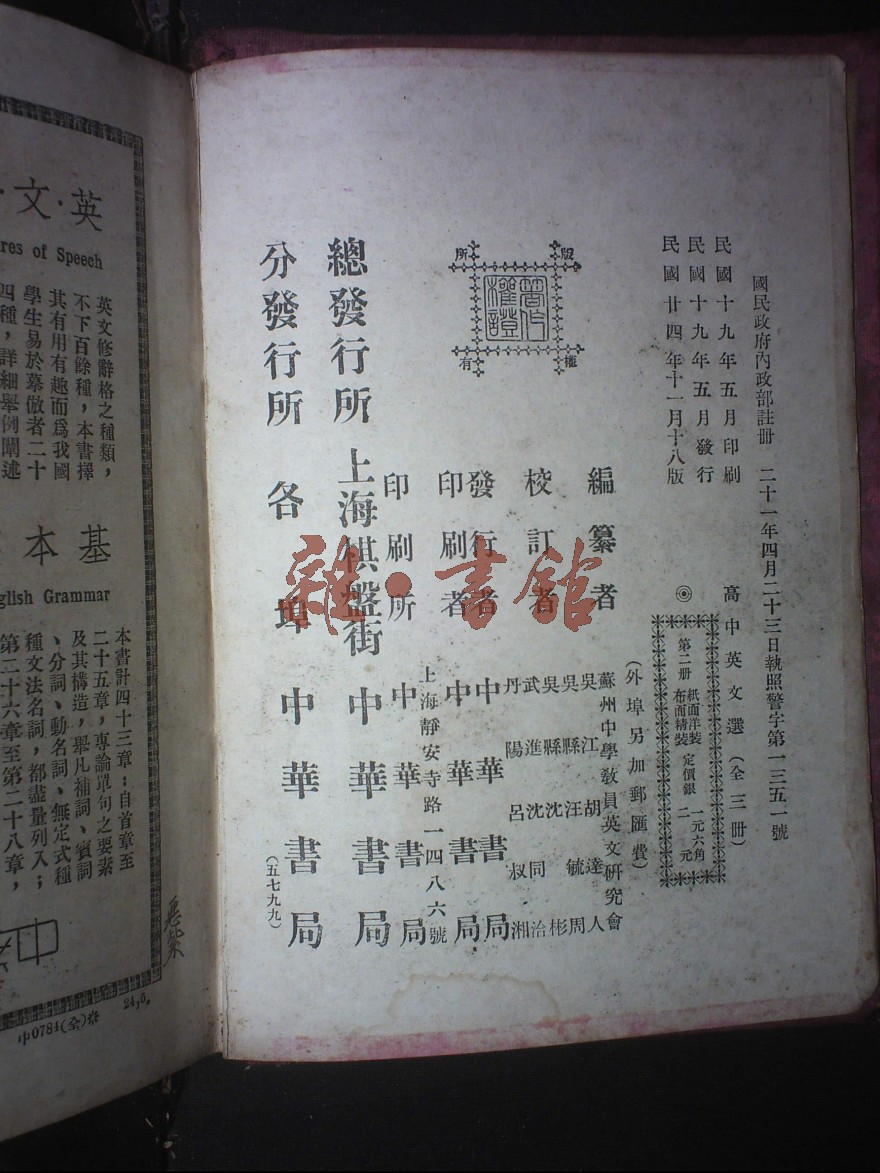 國民政府內政部註冊 二十一年四月二十三日執照警字第一三五一號
民國十九年五月印刷
民國十九年五月發行
民國廿四年十一月十八版
高中英文選（全三冊）
第二册 紙面洋裝 布面精裝 定價銀 一元六角 二元
（外埠另加郵匯費）
版權所有
著作權證
編纂者 蘇州中學教員英文研究會
校訂者
吳江胡達人
吳縣汪毓周
吳縣沈彬
武進沈同洽
丹陽呂叔湘
發行者 中華書局
印刷者 中華書局
上海靜安寺路一四八六號
印刷所 中華書局
總發行所 上海棋盤街 中華書局
分發行所 各埠 中華書局
（五七九九）
雜·書館
英·文·
res of Speech
英文修辭格之種類，
不下百餘種，本書擇
其有用有趣而爲我國
學生易於摹倣者二十
四種，詳細舉例闡述
基本
glish Grammar
本書計四十三章：自首章至
二十五章，專論單句之要素
及其構造，舉凡補詞、賓詞
、分詞、動名詞、無定式種
種文法名詞，都盡量列入；
第二十六章至第二十八章，
中
中0784(全)
24,5.